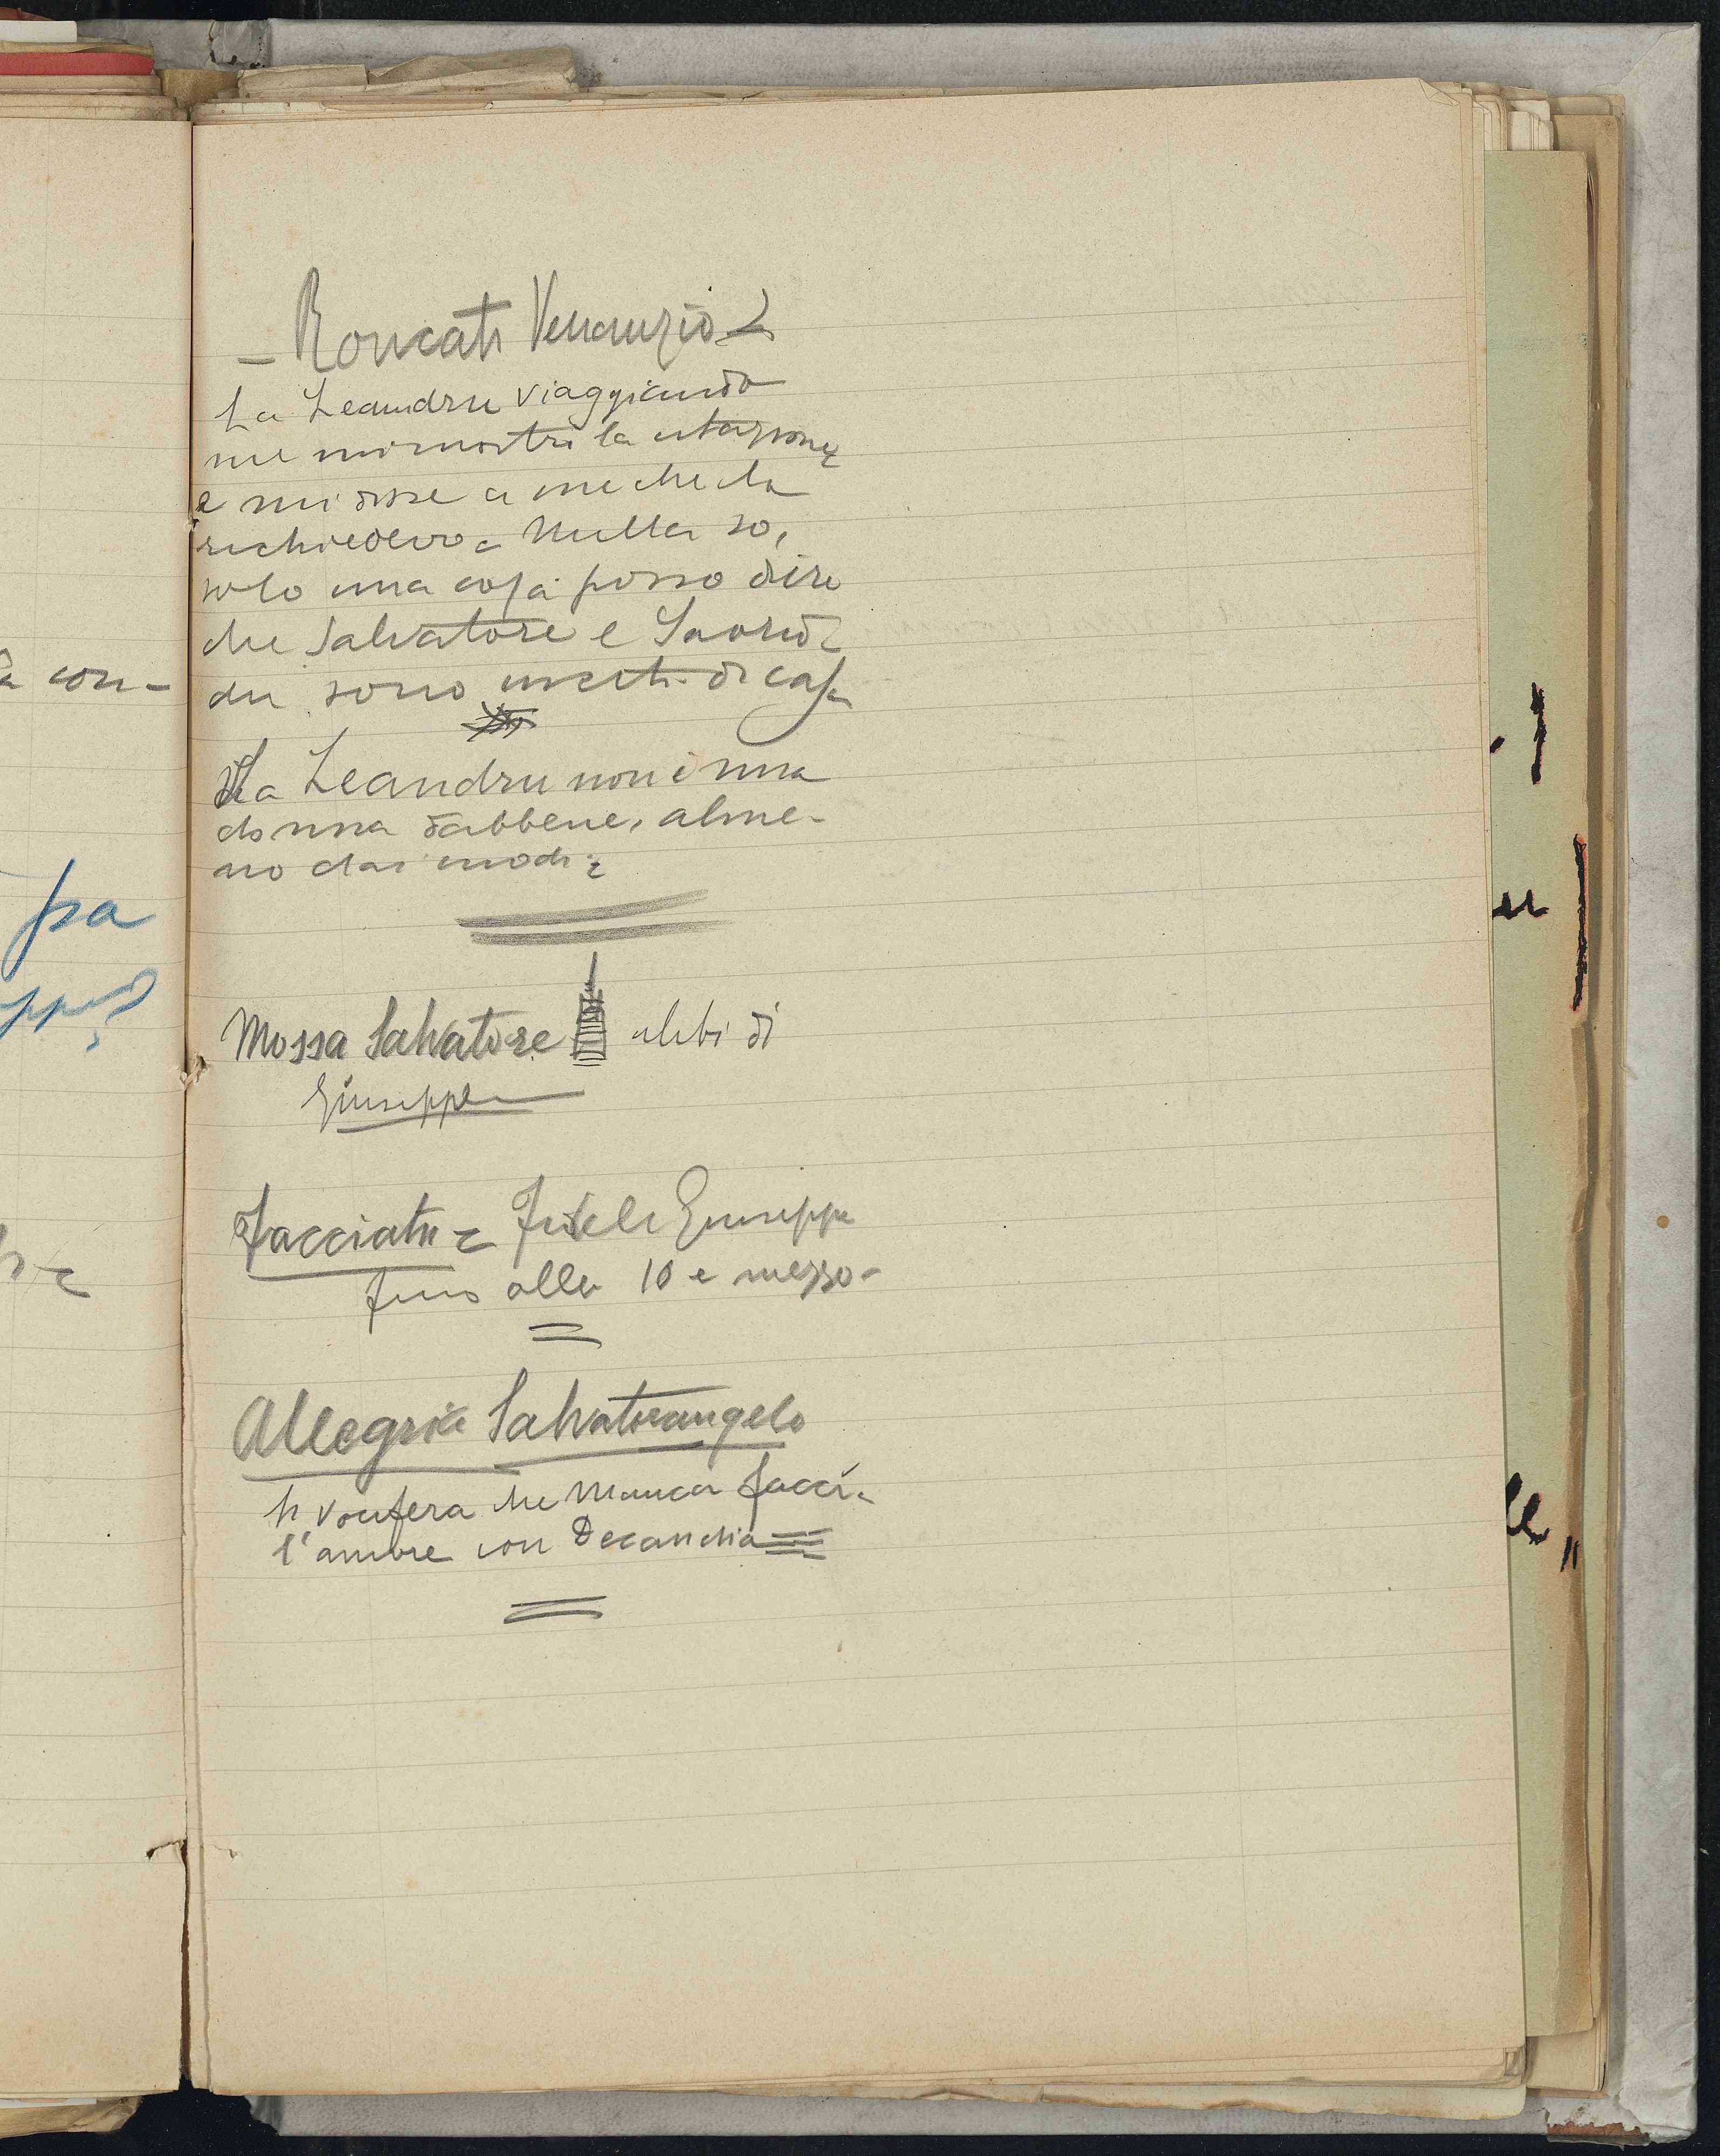 – Roncati Venanzio =
La Leandru viaggiando
me mi mostrò la citazione
e mi disse a me che la
richiedevo = Nulla so,
solo una cosa posso dire
che Salvatore e
sono usciti di casa
La Leandru non è una
donna dabbene, alme-
no dai modi =
Mossa Salvatore alibi di
Giuseppe
Facciatu = Fideli Giuseppe
fino alle 10 e mezzo -
Allegria Salvatorangelo
Si vocifera che Manca facci-
l'amore con Decandia =
a con-